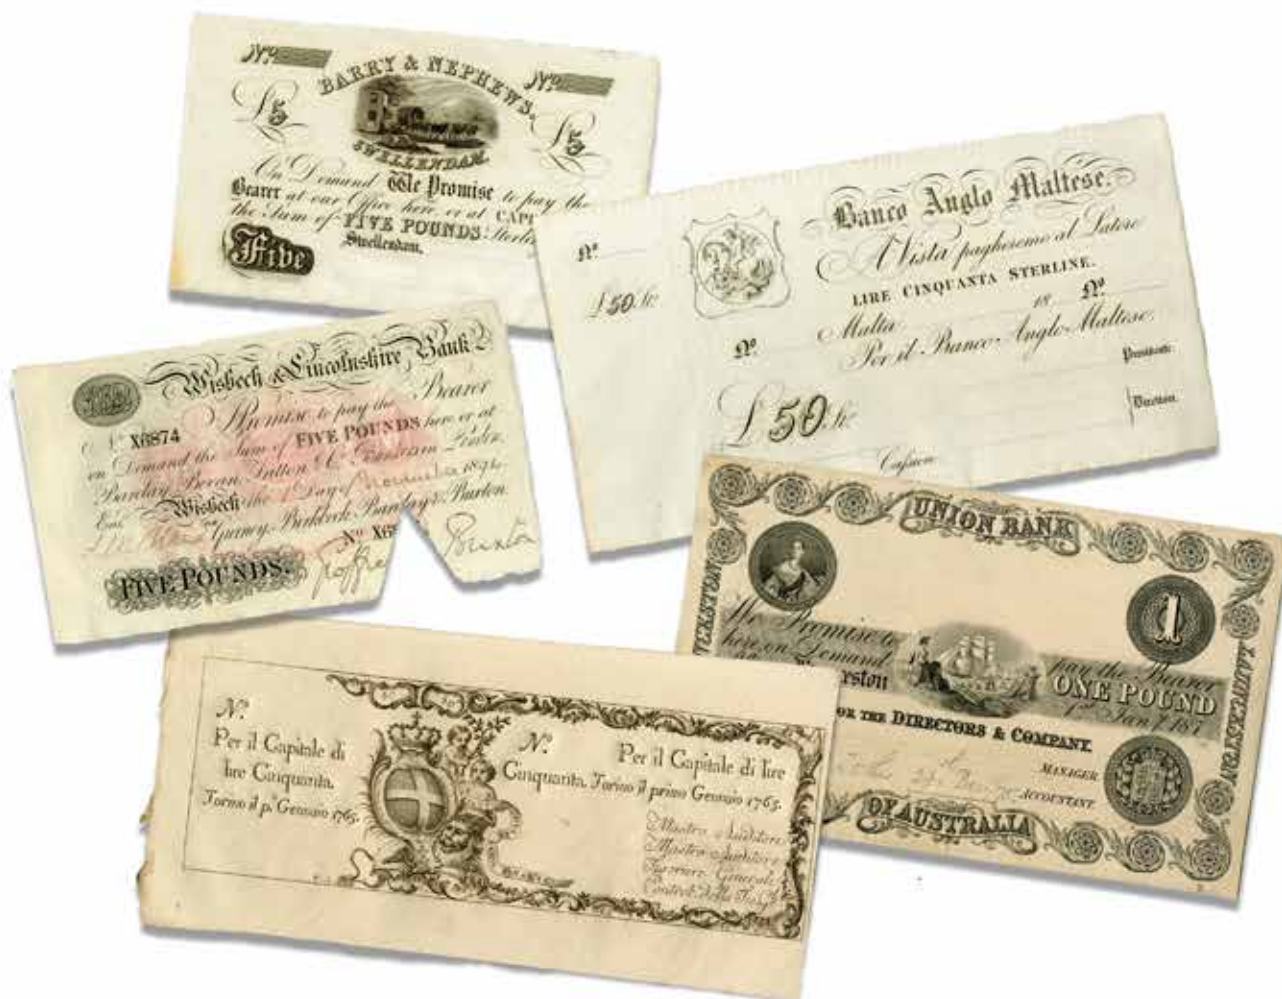 Nº Nº
BARRY & NEPHEWS.
£5 £5
SWELLENDAM.
On Demand We Promise to pay the
Bearer at our Office here or at CAP
the Sum of FIVE POUNDS Sterli
Swellendam.
Five
Banco Anglo Maltese.
Nº
A Vista pagheremo al Latore
£50 Stº
LIRE CINQUANTA STERLINE.
Malta 18 Nº
Nº
Per il Banco Anglo-Maltese.
Presidente
£50 Stº
Direttori.
Cassiere
Wisbech & Lincolnshire Bank
I Promise to pay the Bearer
Nº X6874
on Demand the Sum of FIVE POUNDS here or at
Barclay, Bevan, Tritton & Cº Bankers in London.
Wisbech the Day of November 1894
Ent
Gurney, Birkbeck, Barclay & Buxton
Nº X6
Buxton
FIVE POUNDS.
UNION BANK
1
LAUNCESTON
We Promise to pay the Bearer
here on Demand ONE POUND
eston 1st Jan 7, 187
OR THE DIRECTORS & COMPANY.
MANAGER
ACCOUNTANT
OF AUSTRALIA
Nº
Per il Capitale di
lire Cinquanta.
Torino il pº Gennaio 1765.
Nº Per il Capitale di lire
Cinquanta. Torino il primo Gennaio 1765.
Mastro Auditore
Mastro Auditore
Tesoriere Generale